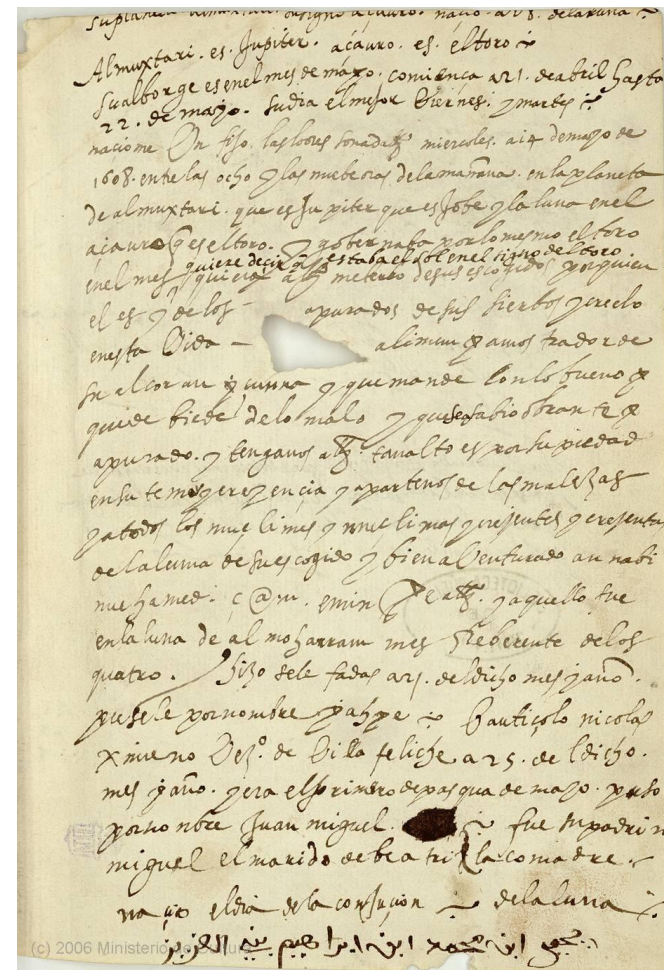 su planeta almuxtari. su signo açauro. naçio a 28. de la luna
Almuxtari. es. Jupiter. açauro. es. el toro
su alborge es en el mes de março. comiença a 21. de abril hasta
22. de mayo. su dia el mejor biernes. y martes
naçiome Un fijo. las lores son ad a miercoles. a 14 de mayo de
1608. entre las ocho y las nuebe oras de la mañana. en la planeta
de almuxtari. que es Jupiter que es Jobe y la luna en el
açauro q es el toro. y gobernaba por lo mesmo el toro
quiere decir q estaba el sol en el signo del toro
en el mes quiera meterlo de sus escogidos por quien
el es y de los apurados de sus sierbos y creelo
en esta Vida alimun amostrador de
su alcoran y çunna y que mande con lo bueno
que de biede de lo malo y que sea sabio obrante
apurado. y tenganos tan alto es por su piedad
en su temor y erençia y apartenos de las malezas
y a todos los muçlimes y muçlimas y creyentes y creyentas
de la luna de su escogido y bienabenturado an nabi
muhamed. ç@m. emin y aquello fue
en la luna de al moharram mes Reberente de los
quatro. hizo se le fadas a 21. del dicho mes y año.
pusele por nombre yahye bautiçolo nicolas
ximeno de Villa feliche a 25. de l dicho.
mes y año. y era el primero de pasqua de mayo. puso
por nonbre Juan miguel. fue su padrin
miguel el marido de beatriz la comadre
naçio el dia de la conjuçion de la luna
يحيى ابن محمد ابن ابراهيم
(c) 2006 Ministerio de Cultura